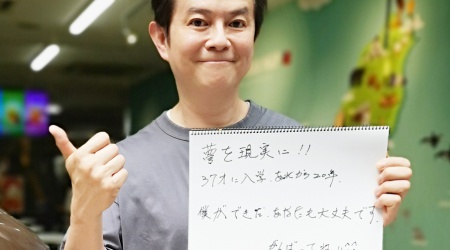 夢を現実に!!
37才に入学 あれから20年.
僕ができた. あなたも大丈夫です.
がんばってねい^^